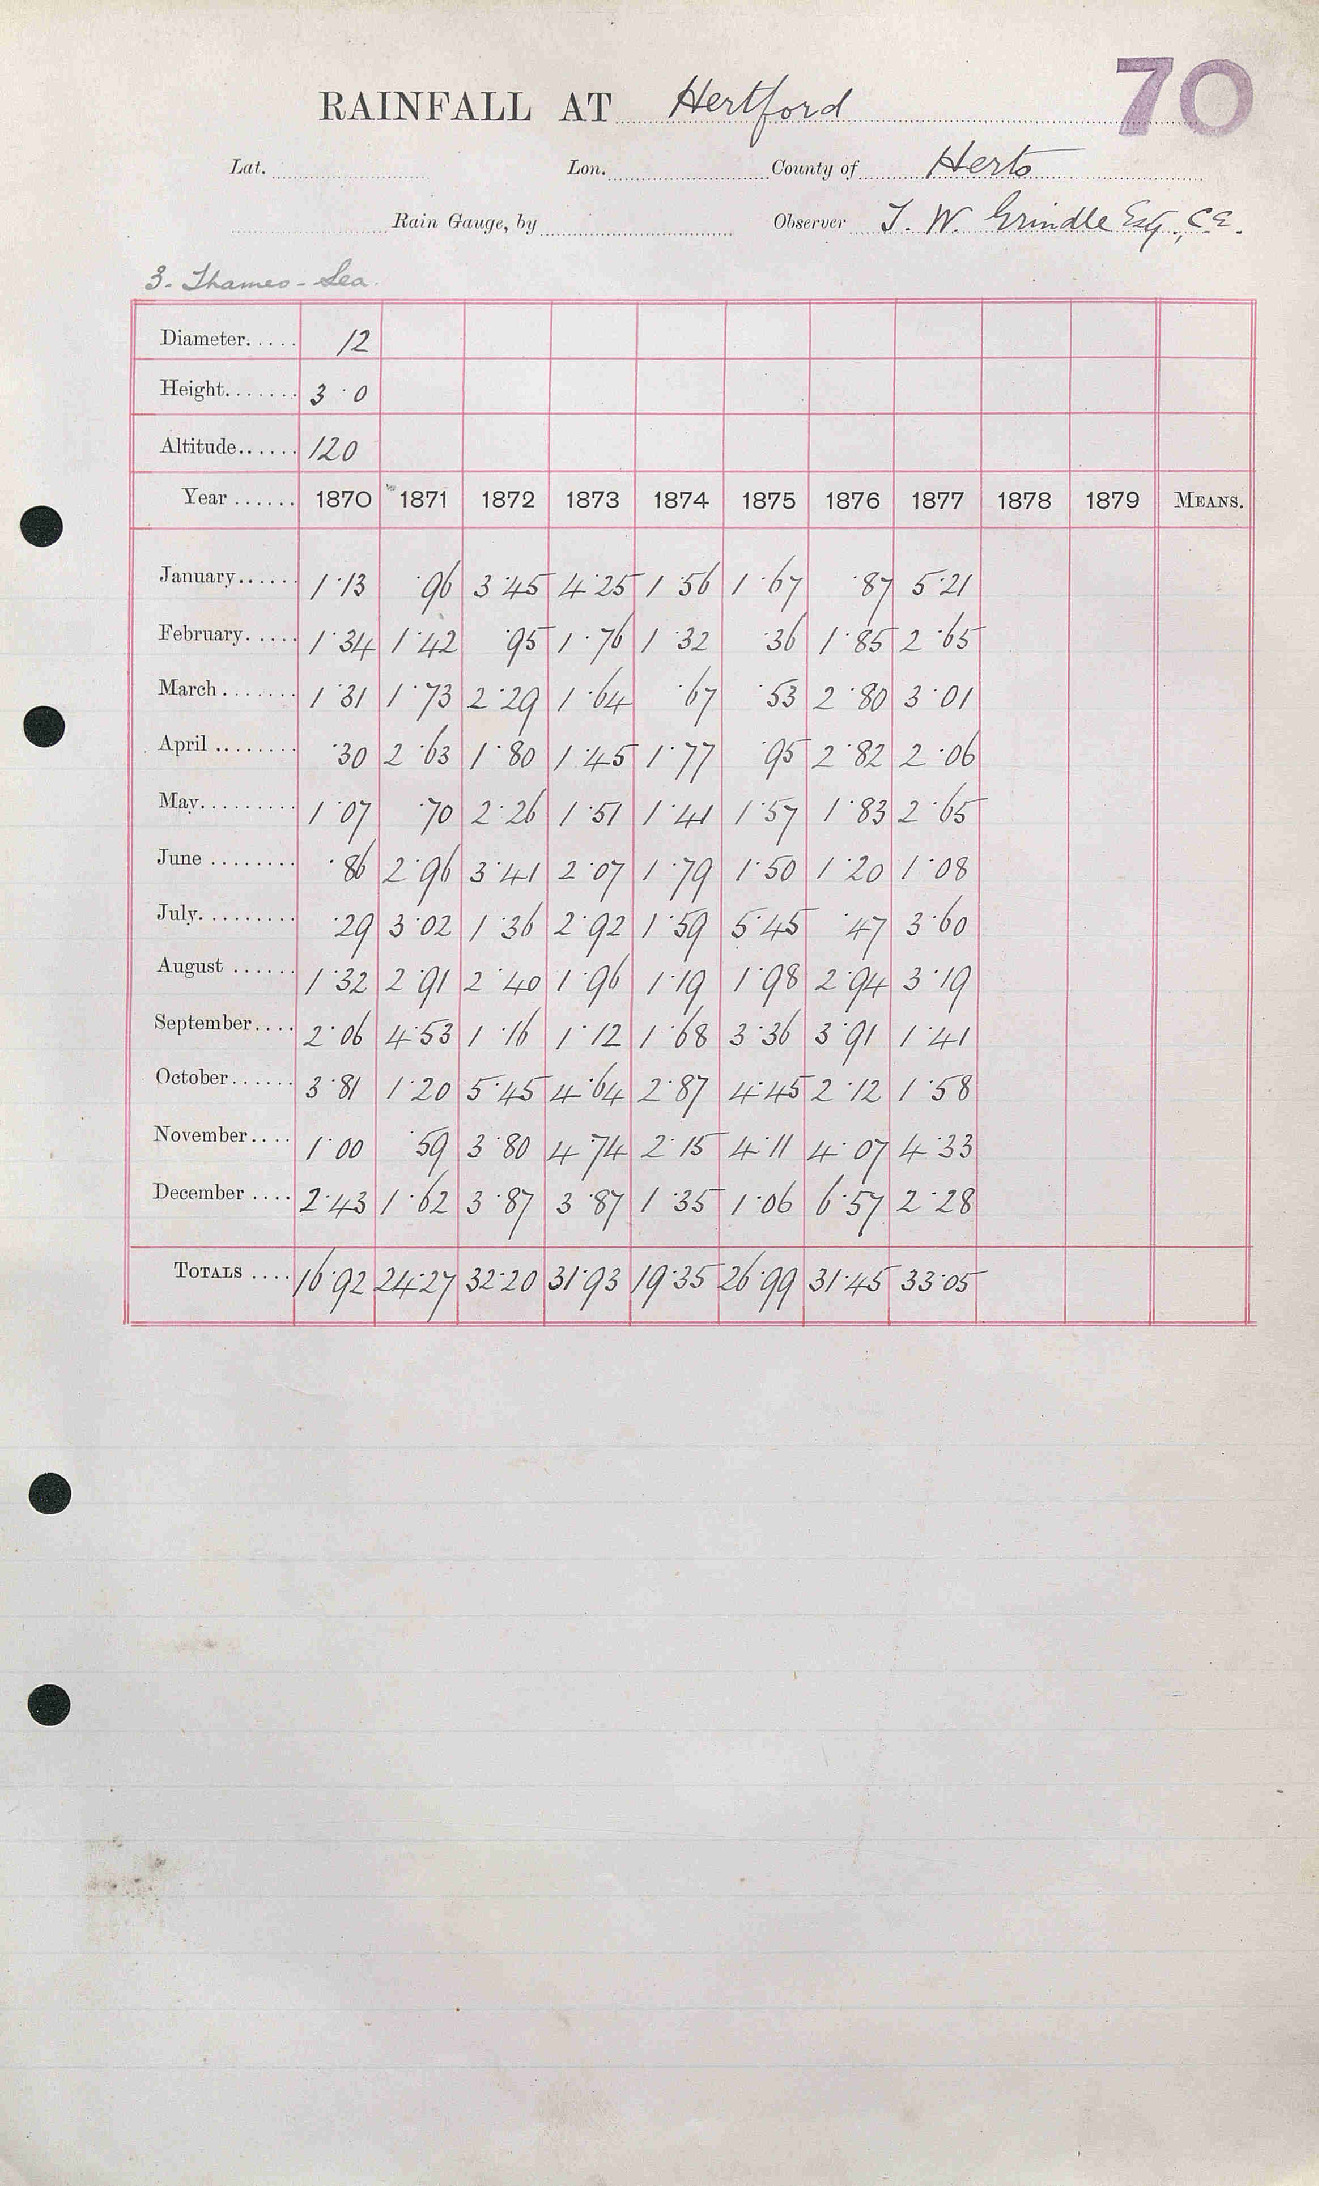 70
RAINFALL AT Hertford
Lat. Lon. County of Herts
Rain Gauge, by Observer J. W. Grindle Esq., C.E.
3. Thames - Sea.
Diameter 12
Height 3·0
Altitude 120
Year 1870 1871 1872 1873 1874 1875 1876 1877 1878 1879 MEANS.
January 1·13 ·96 3·45 4·25 1·56 1·67 ·87 5·21
February 1·34 1·42 ·95 1·76 1·32 ·36 1·85 2·65
March 1·31 1·73 2·29 1·64 ·67 ·53 2·80 3·01
April ·30 2·63 1·80 1·45 1·77 ·95 2·82 2·06
May 1·07 ·70 2·26 1·51 1·41 1·57 1·83 2·65
June ·86 2·96 3·41 2·07 1·79 1·50 1·20 1·08
July ·29 3·02 1·36 2·92 1·59 5·45 ·47 3·60
August 1·32 2·91 2·40 1·96 1·19 1·98 2·94 3·19
September 2·06 4·53 1·16 1·12 1·68 3·36 3·91 1·41
October 3·81 1·20 5·45 4·64 2·87 4·45 2·12 1·58
November 1·00 ·59 3·80 4·74 2·15 4·11 4·07 4·33
December 2·43 1·62 3·87 3·87 1·35 1·06 6·57 2·28
TOTALS 16·92 24·27 32·20 31·93 19·35 26·99 31·45 33·05